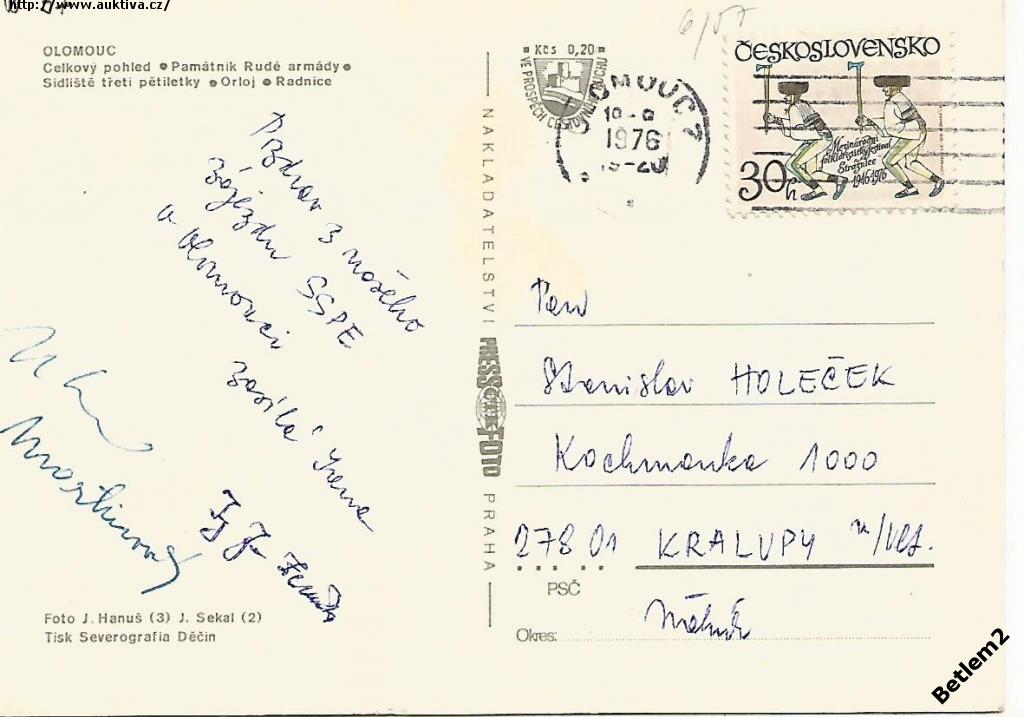 http://www.auktiva.cz/
OLOMOUC
Celkový pohled ● Památník Rudé armády ●
Sídliště třetí pětiletky ● Orloj ● Radnice
Pozdrav z našeho
zájezdu SSPE
v Olomouci
zasílá Irena
Foto J. Hanuš (3) J. Sekal (2)
Tisk Severografia Děčín
NAKLADATELSTVÍ
PRESSFOTO
PRAHA
Kčs 0,20
VE PROSPĚCH
OLOMOUC 7
1976
6/57
ČESKOSLOVENSKO
Mezinárodní
folkloristický festival
Strážnice
1946-1976
30h
Pan
Stanislav HOLEČEK
Kochmanka 1000
278 01 KRALUPY n/Vlt.
PSČ
Okres: Mělník
Betlem2